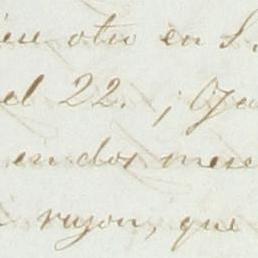 otro en S.
el 22. ; Ya
en dos mese
rason, que